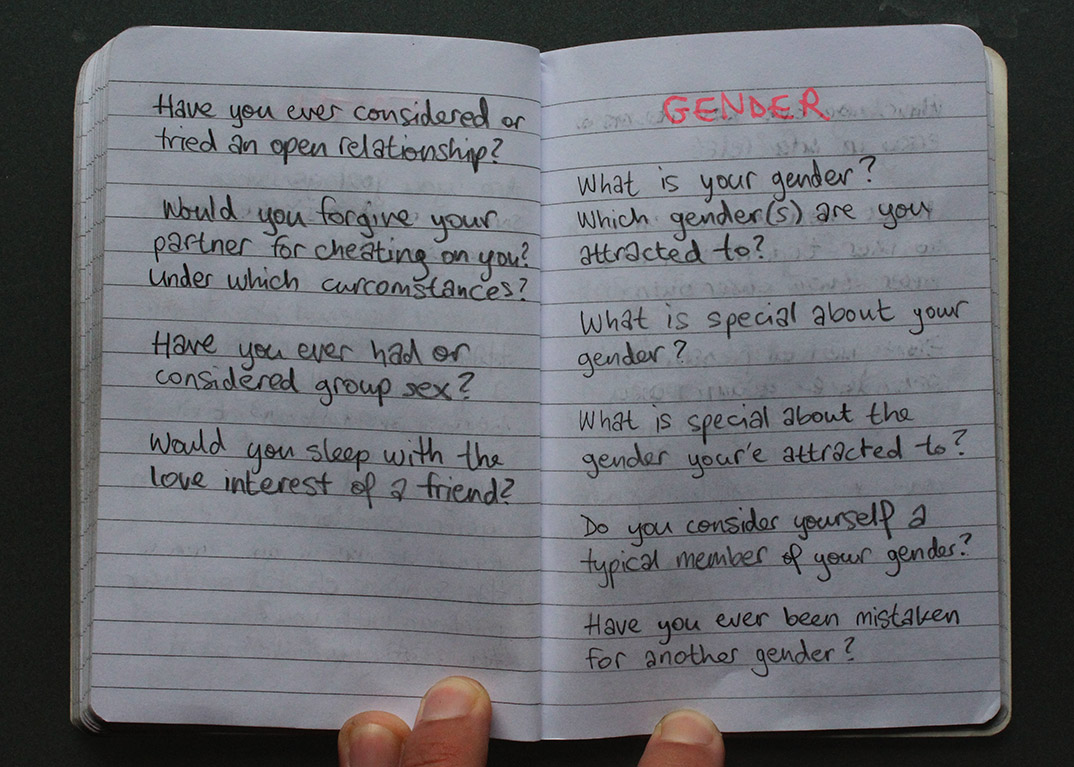 Have you ever considered or
tried an open relationship?
Would you forgive your
partner for cheating on you?
Under which curcomstances?
Have you ever had or
considered group sex?
Would you sleep with the
love interest of a friend?
GENDER
What is your gender?
Which gender(s) are you
attracted to?
What is special about your
gender?
What is special about the
gender your'e attracted to?
Do you consider yourself a
typical member of your gender?
Have you ever been mistaken
for another gender?